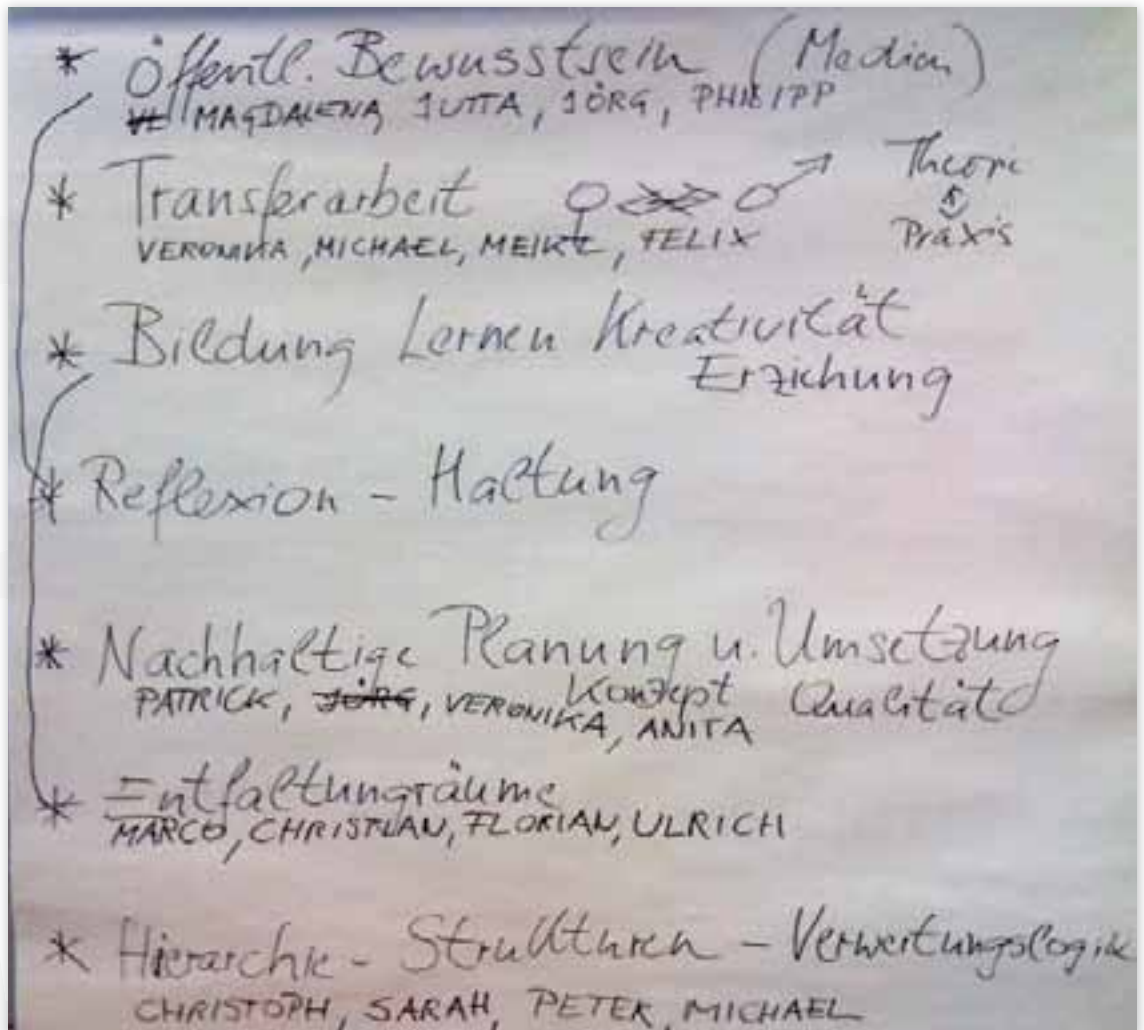 * Öffentl. Bewusstsein (Medien)
MAGDALENA, JUTTA, JÖRG, PHILIPP
* Transferarbeit Theorie
Praxis
VERONIKA, MICHAEL, MEIKE, FELIX
* Bildung Lernen Kreativität
Erziehung
* Reflexion - Haltung
* Nachhaltige Planung u. Umsetzung
Konzept Qualität
PATRICK, JÖRG, VERONIKA, ANITA
* Entfaltungräume
MARCO, CHRISTIAN, FLORIAN, ULRICH
* Hierarchie - Strukturen - Verwertungslogik
CHRISTOPH, SARAH, PETER, MICHAEL